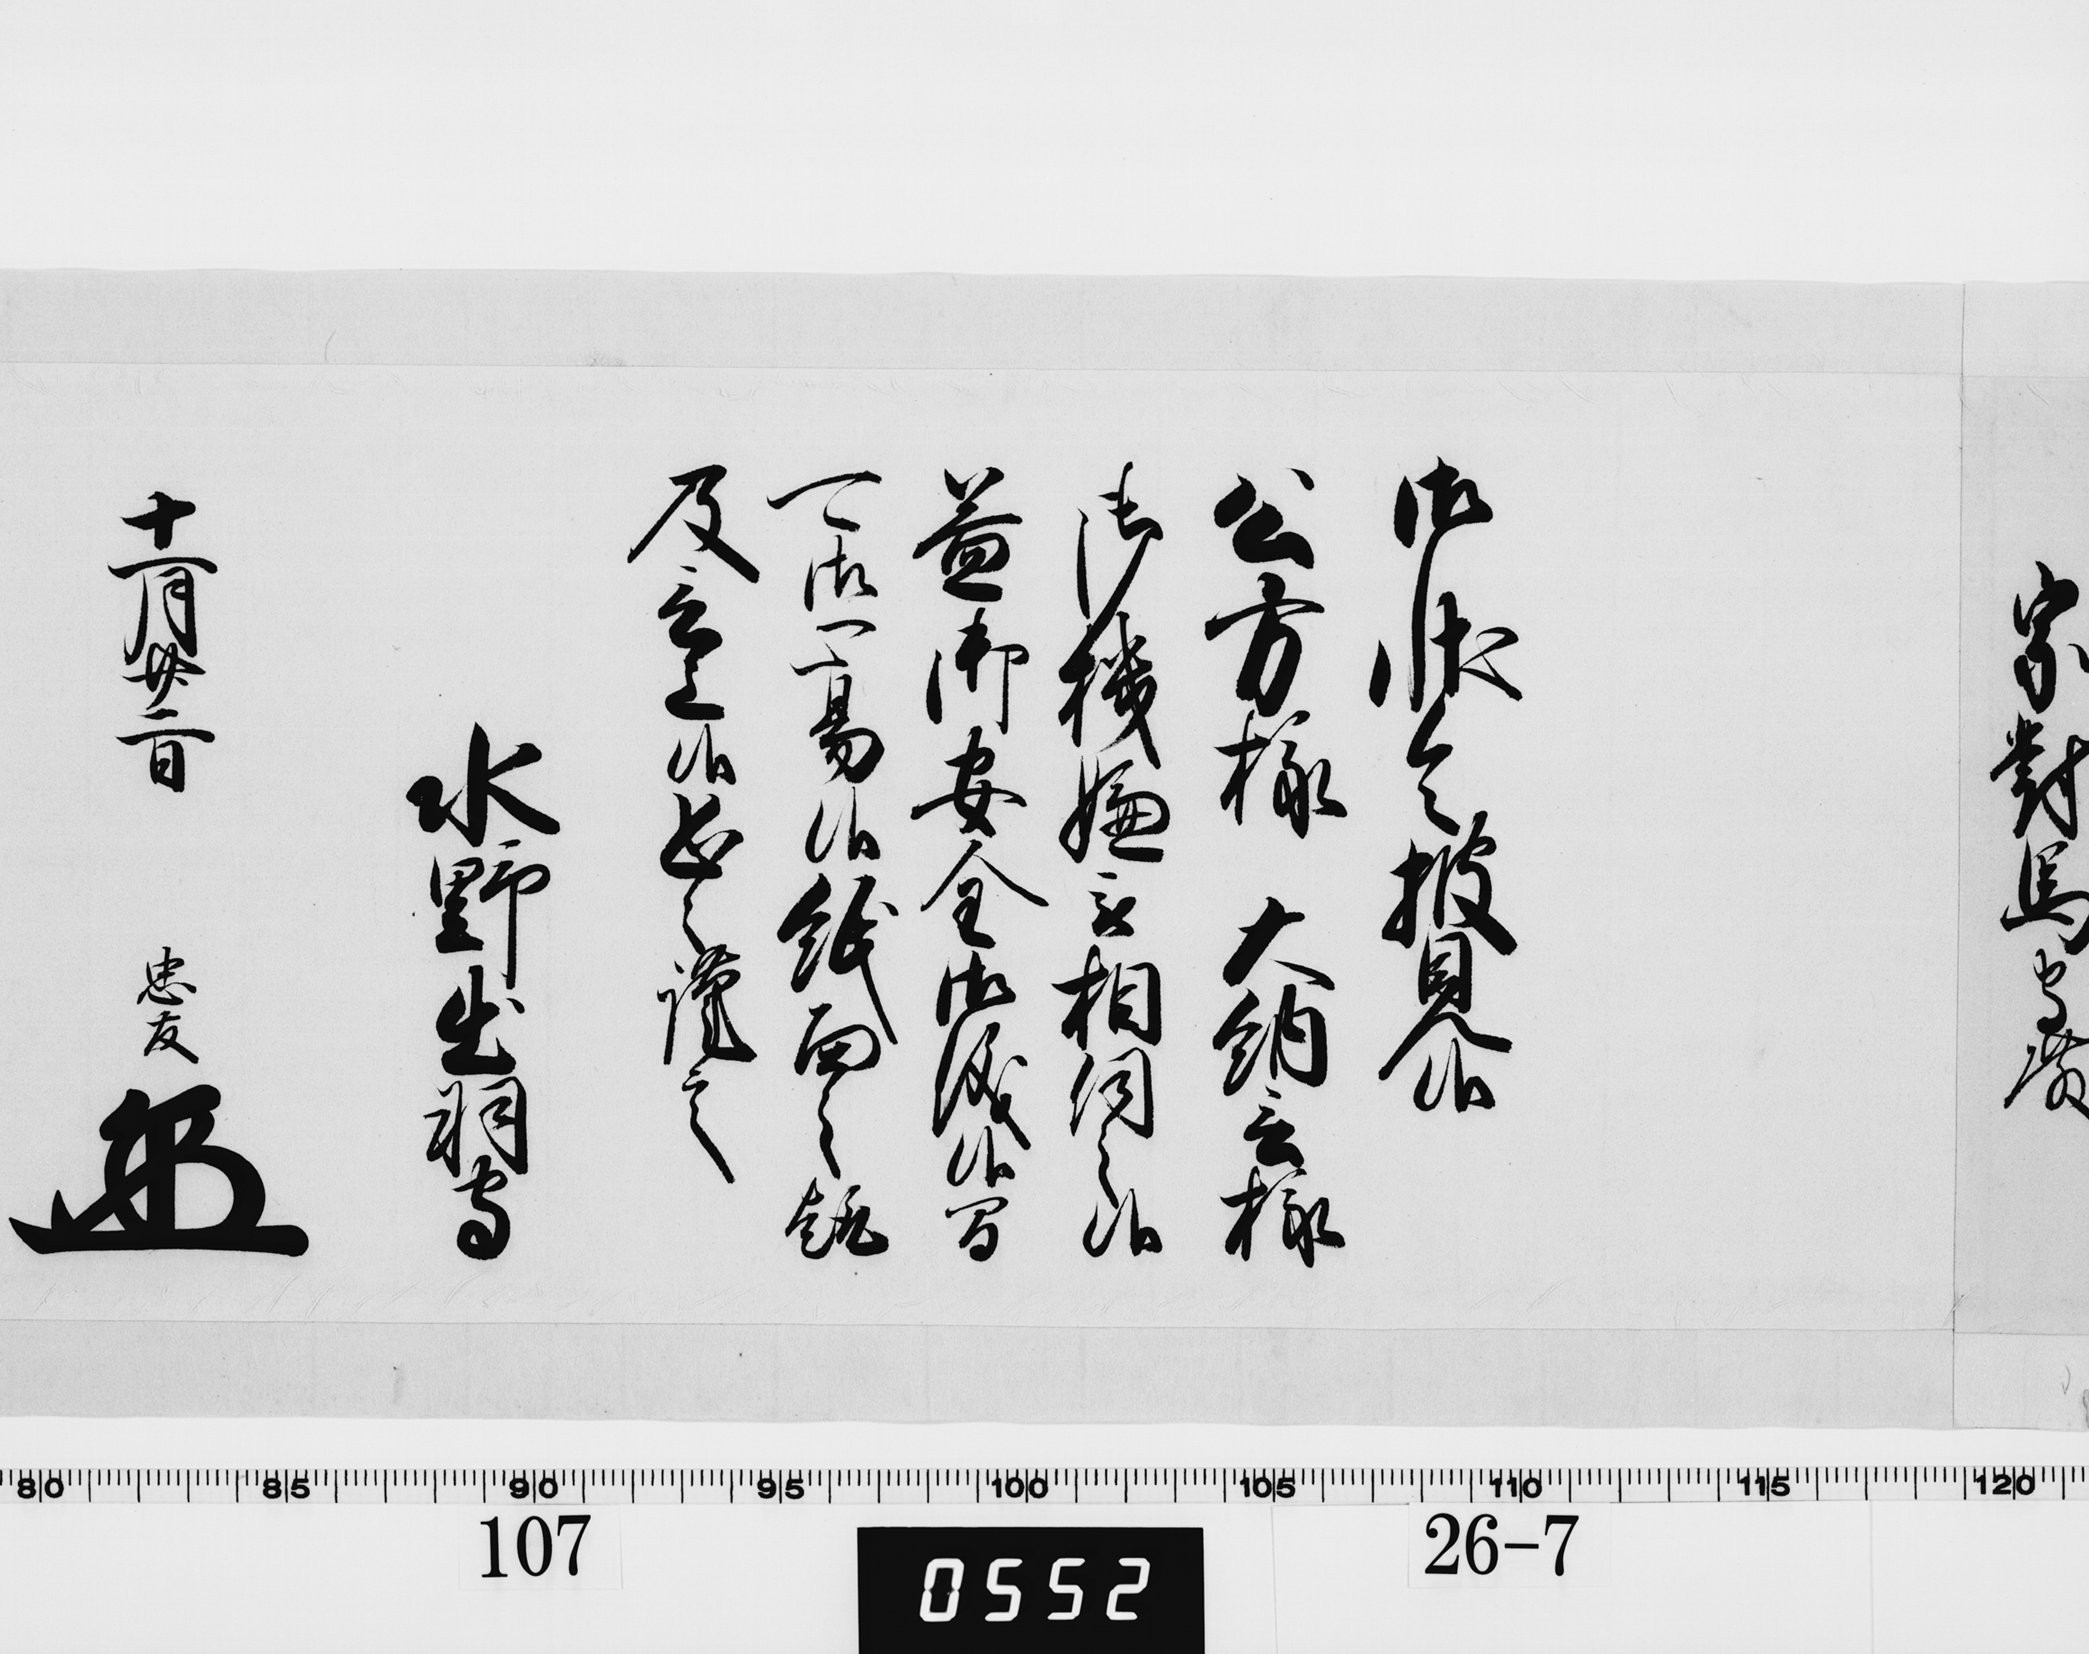 宗對馬守殿
御状令披見候
公方様　大納言様
御機嫌被相伺之候
益御安全御儀候間
可御心易候紙面之趣
及言上候恐々謹言
水野出羽守
十一月廿二日　忠友
80 85 90 95 100 105 110 115 120
107
0552
26-7